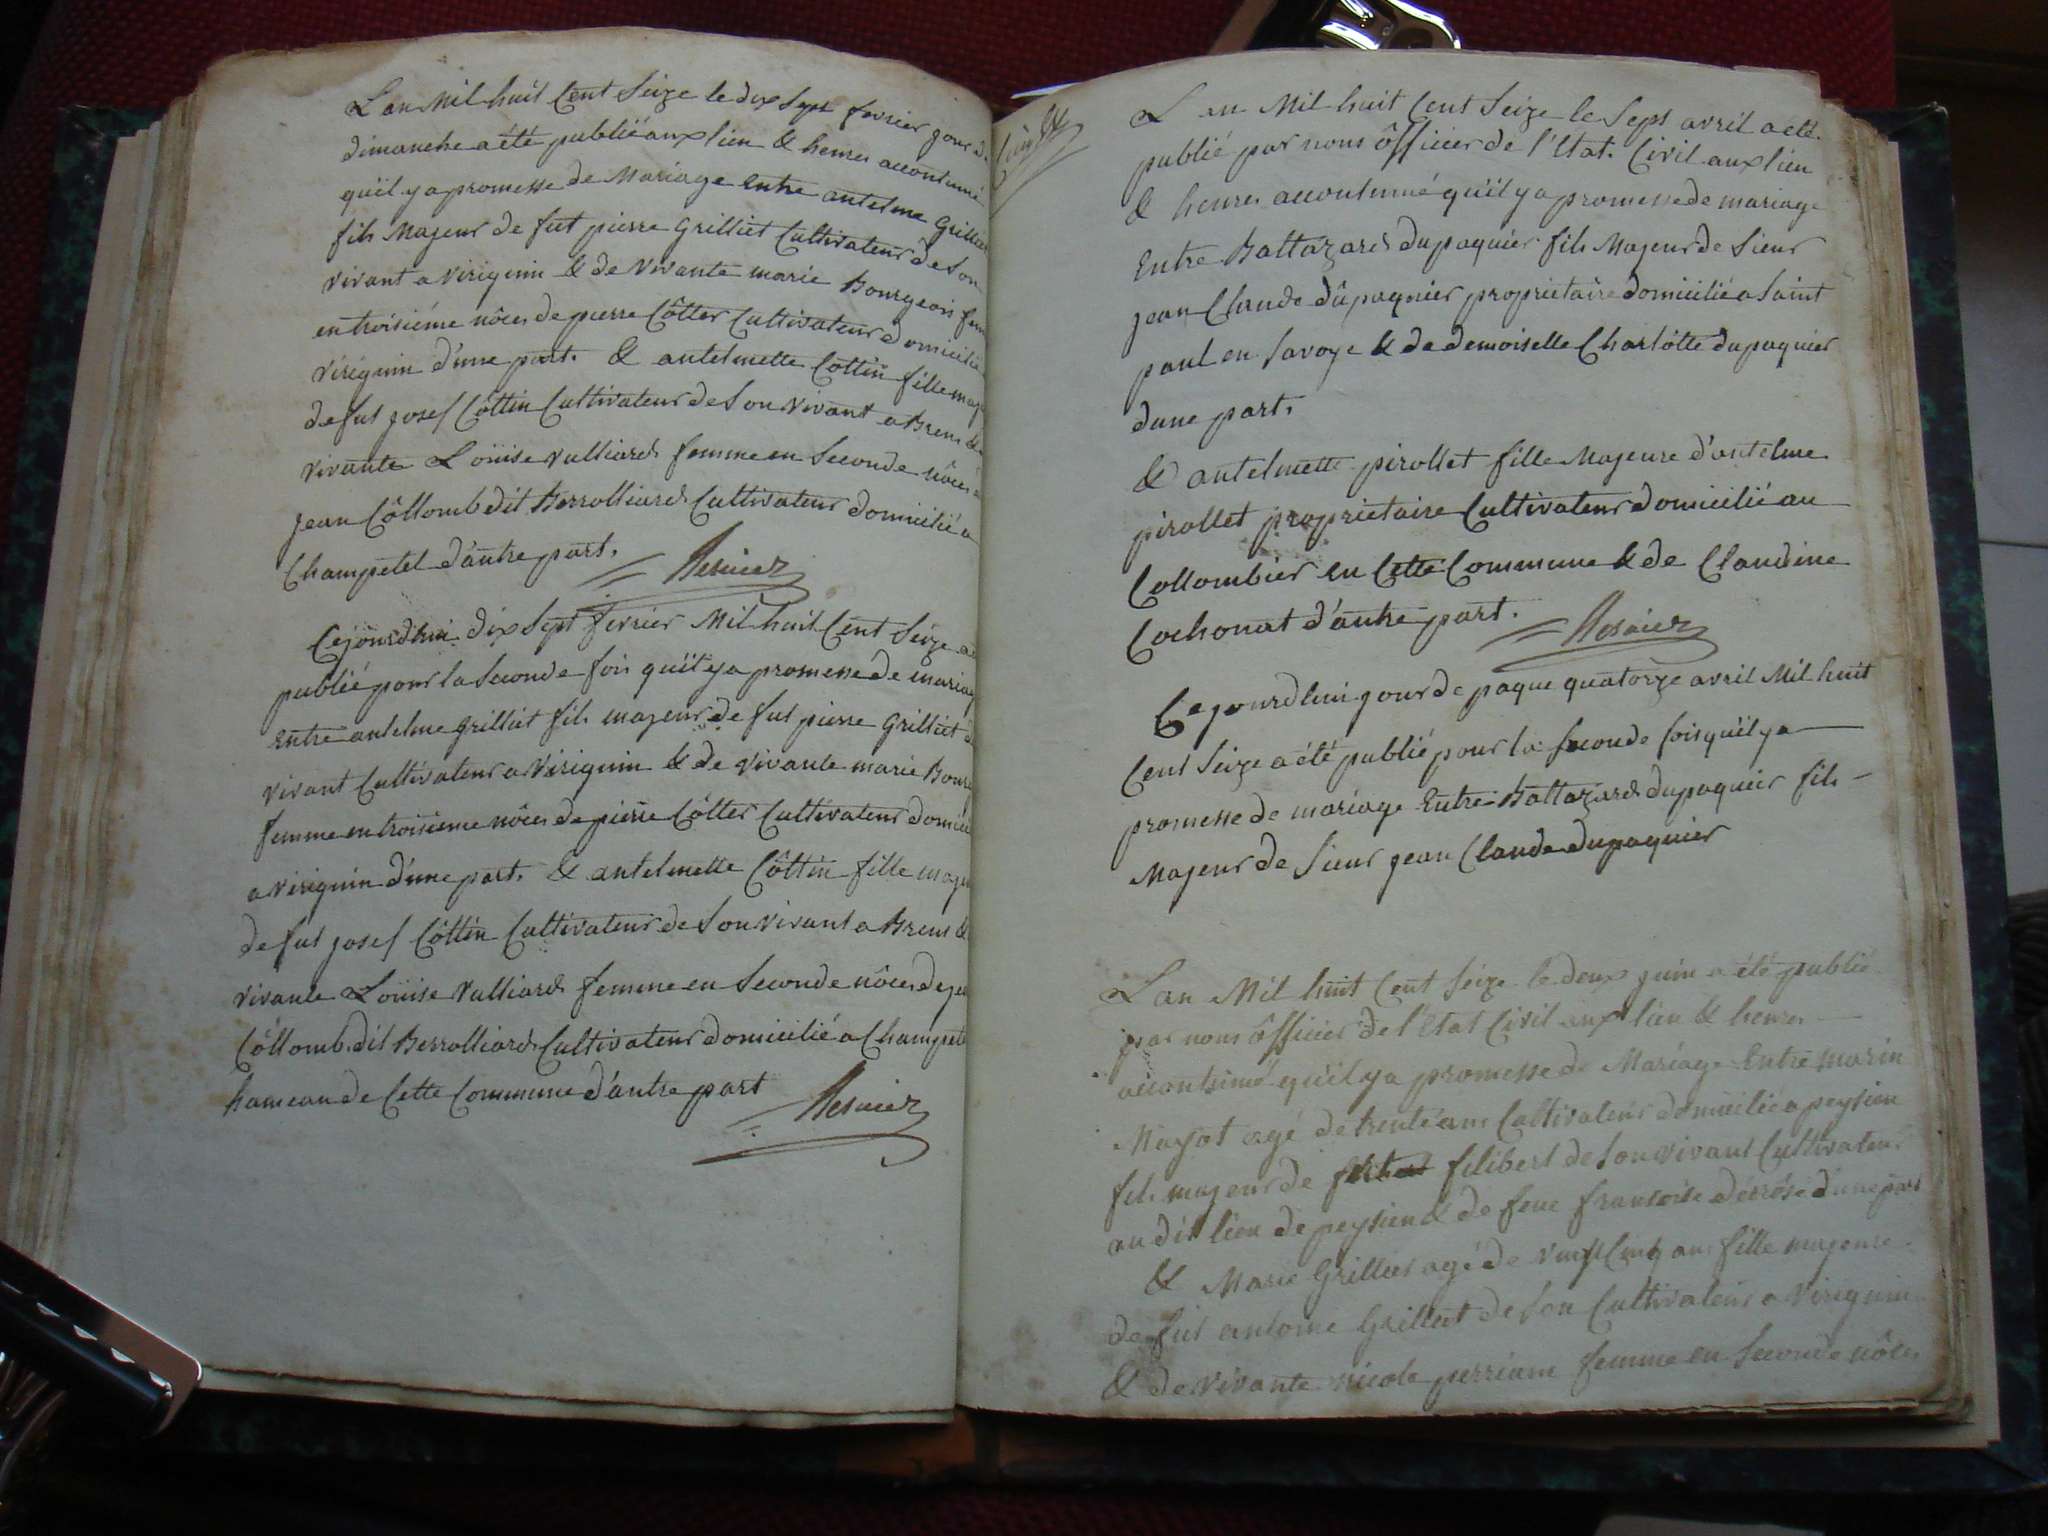 L an Mil huit Cent Seize le dix Sept fevrier jour d
dimanche a été publié aux lieu & heures accoutumé
qu'il y a promesse de Mariage Entre antelme Grilliet
fils Majeur de fut pierre Grilliet Cultivateur de Son
vivant a virignin & de vivante marie Bourgeois fem
en troisiéme nôces de pierre Côtter Cultivateur domicilié
virignin d'une part. & antelmette Côttin fille maj
de fut josef Côttin Cultivateur de Son vivant a Brens &
vivante Loüise vulliard femme en Seconde nôces
jean Côllomb dit Berrolliard Cultivateur domicilié a
Champetel d'autre part.
Cejourdhui dix Sept fevrier Mil huit Cent Seize a
publié pour la Seconde fois qu'il y a promesse de mariag
Entre antelme grilliet fils majeur de fut pierre Grilliet d
vivant Cultivateur a virignin & de vivante marie Bourg
femme en troisieme nôces de pierre Côtter Cultivateur domici
a virignin d'une part. & antelmette Côttin fille maje
de fut josef Côttin Cultivateur de Son vivant a Brens &
vivante Loüise vulliard femme en Seconde nôces de je
Côllomb dit Berrolliard Cultivateur domicilié a Champete
hameau de Cette Commune d'autre part
L an Mil huit Cent Seize le Sept avril a été
publié par nous ôfficier de l'Etat Civil aux lieu
& heures accoutumé qu'il y a promesse de mariage
Entre Baltazard dupaquier fils Majeur de Sieur
jean Claude dûpaquier proprietaire domicilié a Saint
paul en Savoye & de demoiselle Charlôtte dupaquier
dune part.
& antelmette pirollet fille Majeure d'antelme
pirollet proprietaire Cultivateur domicilié au
Collombier en Cette Commune & de Claudine
Cochonat d'autre part.
Cejourdhui jour de paque quatorze avril Mil huit
Cent Seize a été publié pour la Seconde fois qu'il y a
promesse de mariage Entre Baltazard dupaquier fils
Majeur de Sieur jean Claude dupaquier
L an Mil huit Cent Seize le deux juin a été publié
par nous ôfficier de l'Etat Civil aux lieu & heures
accoutumé qu'il y a promesse de Mariage Entre marin
Mayot agé de trente ans Cultivateur domicilié a peysieu
fils majeur de filibert de Son vivant Cultivateur
au dit lieu de peysieu & de feue francoise d'une part
& Marie Grilliet agé de vingt Cinq ans fille majeure
de fut antoine Grilliet de Son Cultivateur a virignin
& de vivante nicole perriane femme en Seconde nôces